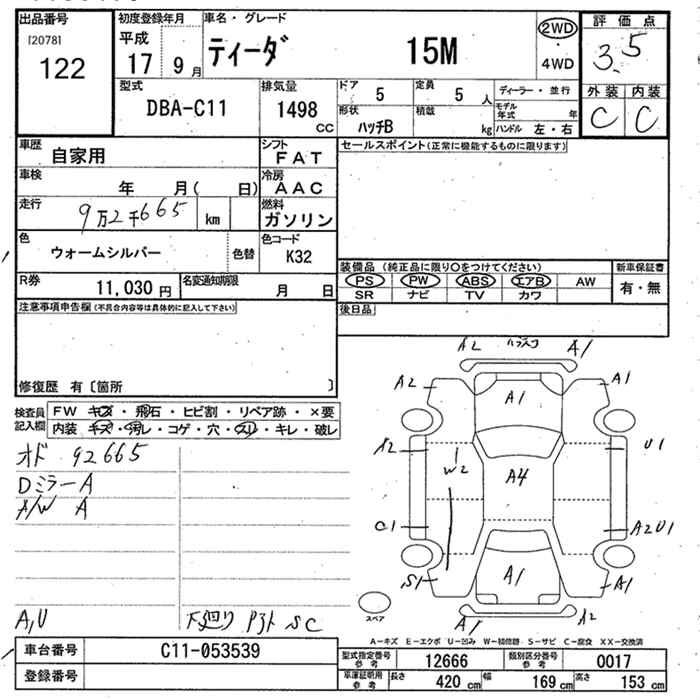 出品番号
[2078]
122
初度登録年月
平成
17 9 月
車名・グレード
ティーダ 15M
2WD
・
4WD
評価点
3.5
外装 内装
C C
型式
DBA-C11
排気量
1498
CC
ドア 5
定員 5 人
ディーラー・並行
形状 ハッチB
積載 kg
モデル年式 年
ハンドル 左・右
車歴 自家用
シフト FAT
車検 年 月( 日)
冷房 AAC
走行 9万2千665 km
燃料 ガソリン
色 ウォームシルバー 色替
色コード K32
R券 11,030 円
名変通知期限 月 日
セールスポイント(正常に機能するものに限ります)
装備品 (純正品に限り○をつけてください)
新車保証書
PS PW ABS エアB AW
有・無
SR ナビ TV カワ
後日品
注意事項申告欄(不具合内容等は具体的に記入して下さい)
修復歴 有〔箇所 〕
検査員
記入欄
FW キズ・飛石・ヒビ割・リペア跡・×要
内装 キズ・汚レ・コゲ・穴・スリ・キレ・破レ
オド 92665
Dミラー A
A/W A
A,U
下廻り Pスト SC
A2 A1
A2 A1 A1
A2 U1
W2 A4
C1 A2U1
S1 A1 A1
スペア
A1 A2
A-キズ E-エクボ U-凹み W-補修跡 S-サビ C-腐食 XX-交換済
車台番号 C11-053539
登録番号
型式指定番号
参考 12666
類別区分番号
参考 0017
車庫証明用
参考
長さ 420 cm
幅 169 cm
高さ 153 cm